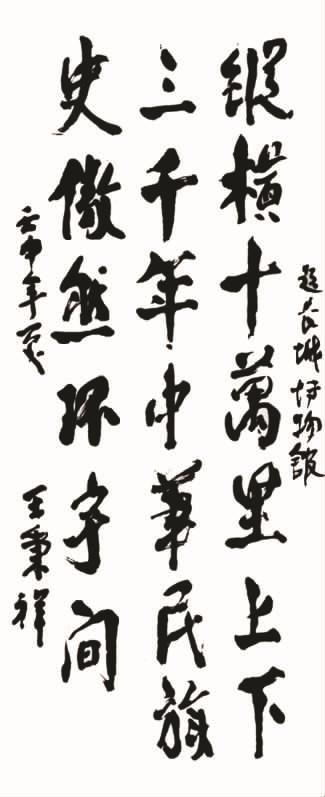 題长城博物館
縱横十萬里上下
三千年中華民族
史傲然环宇间
壬申年夏
王秉祥